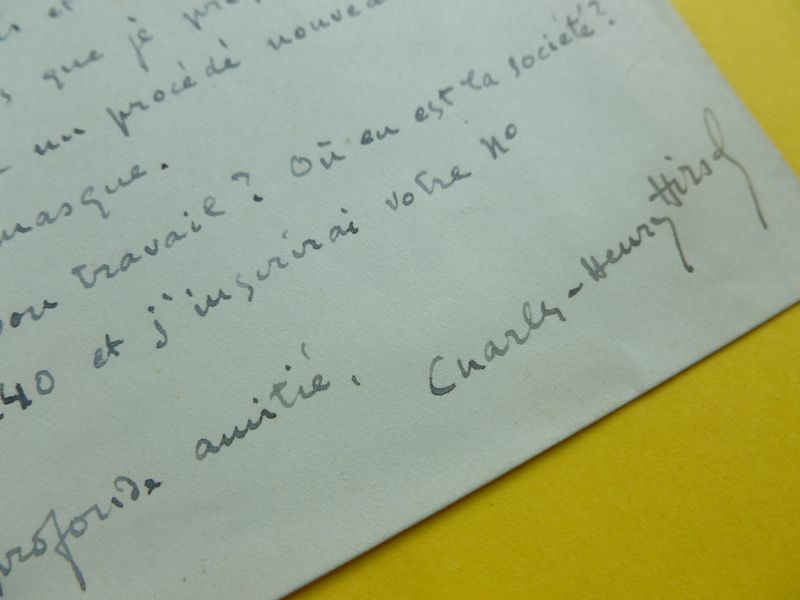 que je
un procédé nouvea
masque.
travail? Où en est la société?
40 et j'inscrirai votre no
profonde amitié.
Charles-Henry Hirsch